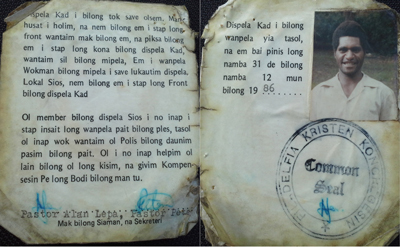 Dispela Kad i bilong tok save olsem. Man
husat i holim, na nem bilong em i stap long
front wantaim mak bilong em, na piksa bilong
em i stap long kona bilong dispela Kad,
wantaim sil bilong mipela, Em i wanpela
Wokman bilong mipela i save lukautim dispela
Lokal Sios, nem bilong em i stap long Front
bilong dispela Kad
Ol member bilong dispela Sios i no inap i
stap insait long wanpela pait bilong ples, tasol
ol inap wok wantaim ol Polis bilong daunim
pasim bilong pait. Ol i no inap helpim ol
lain bilong ol long kisim, na givim Kompen-
sesin Pe long Bodi bilong man tu.
Pastor Alan Lepa, Pastor
Mak bilong Siaman, na Sekreteri
Dispela Kad i bilong
wanpela yia tasol,
na em bai pinis long
namba 31 de bilong
namba 12 mun
bilong 19 86........
KRISTEN
Common
Seal